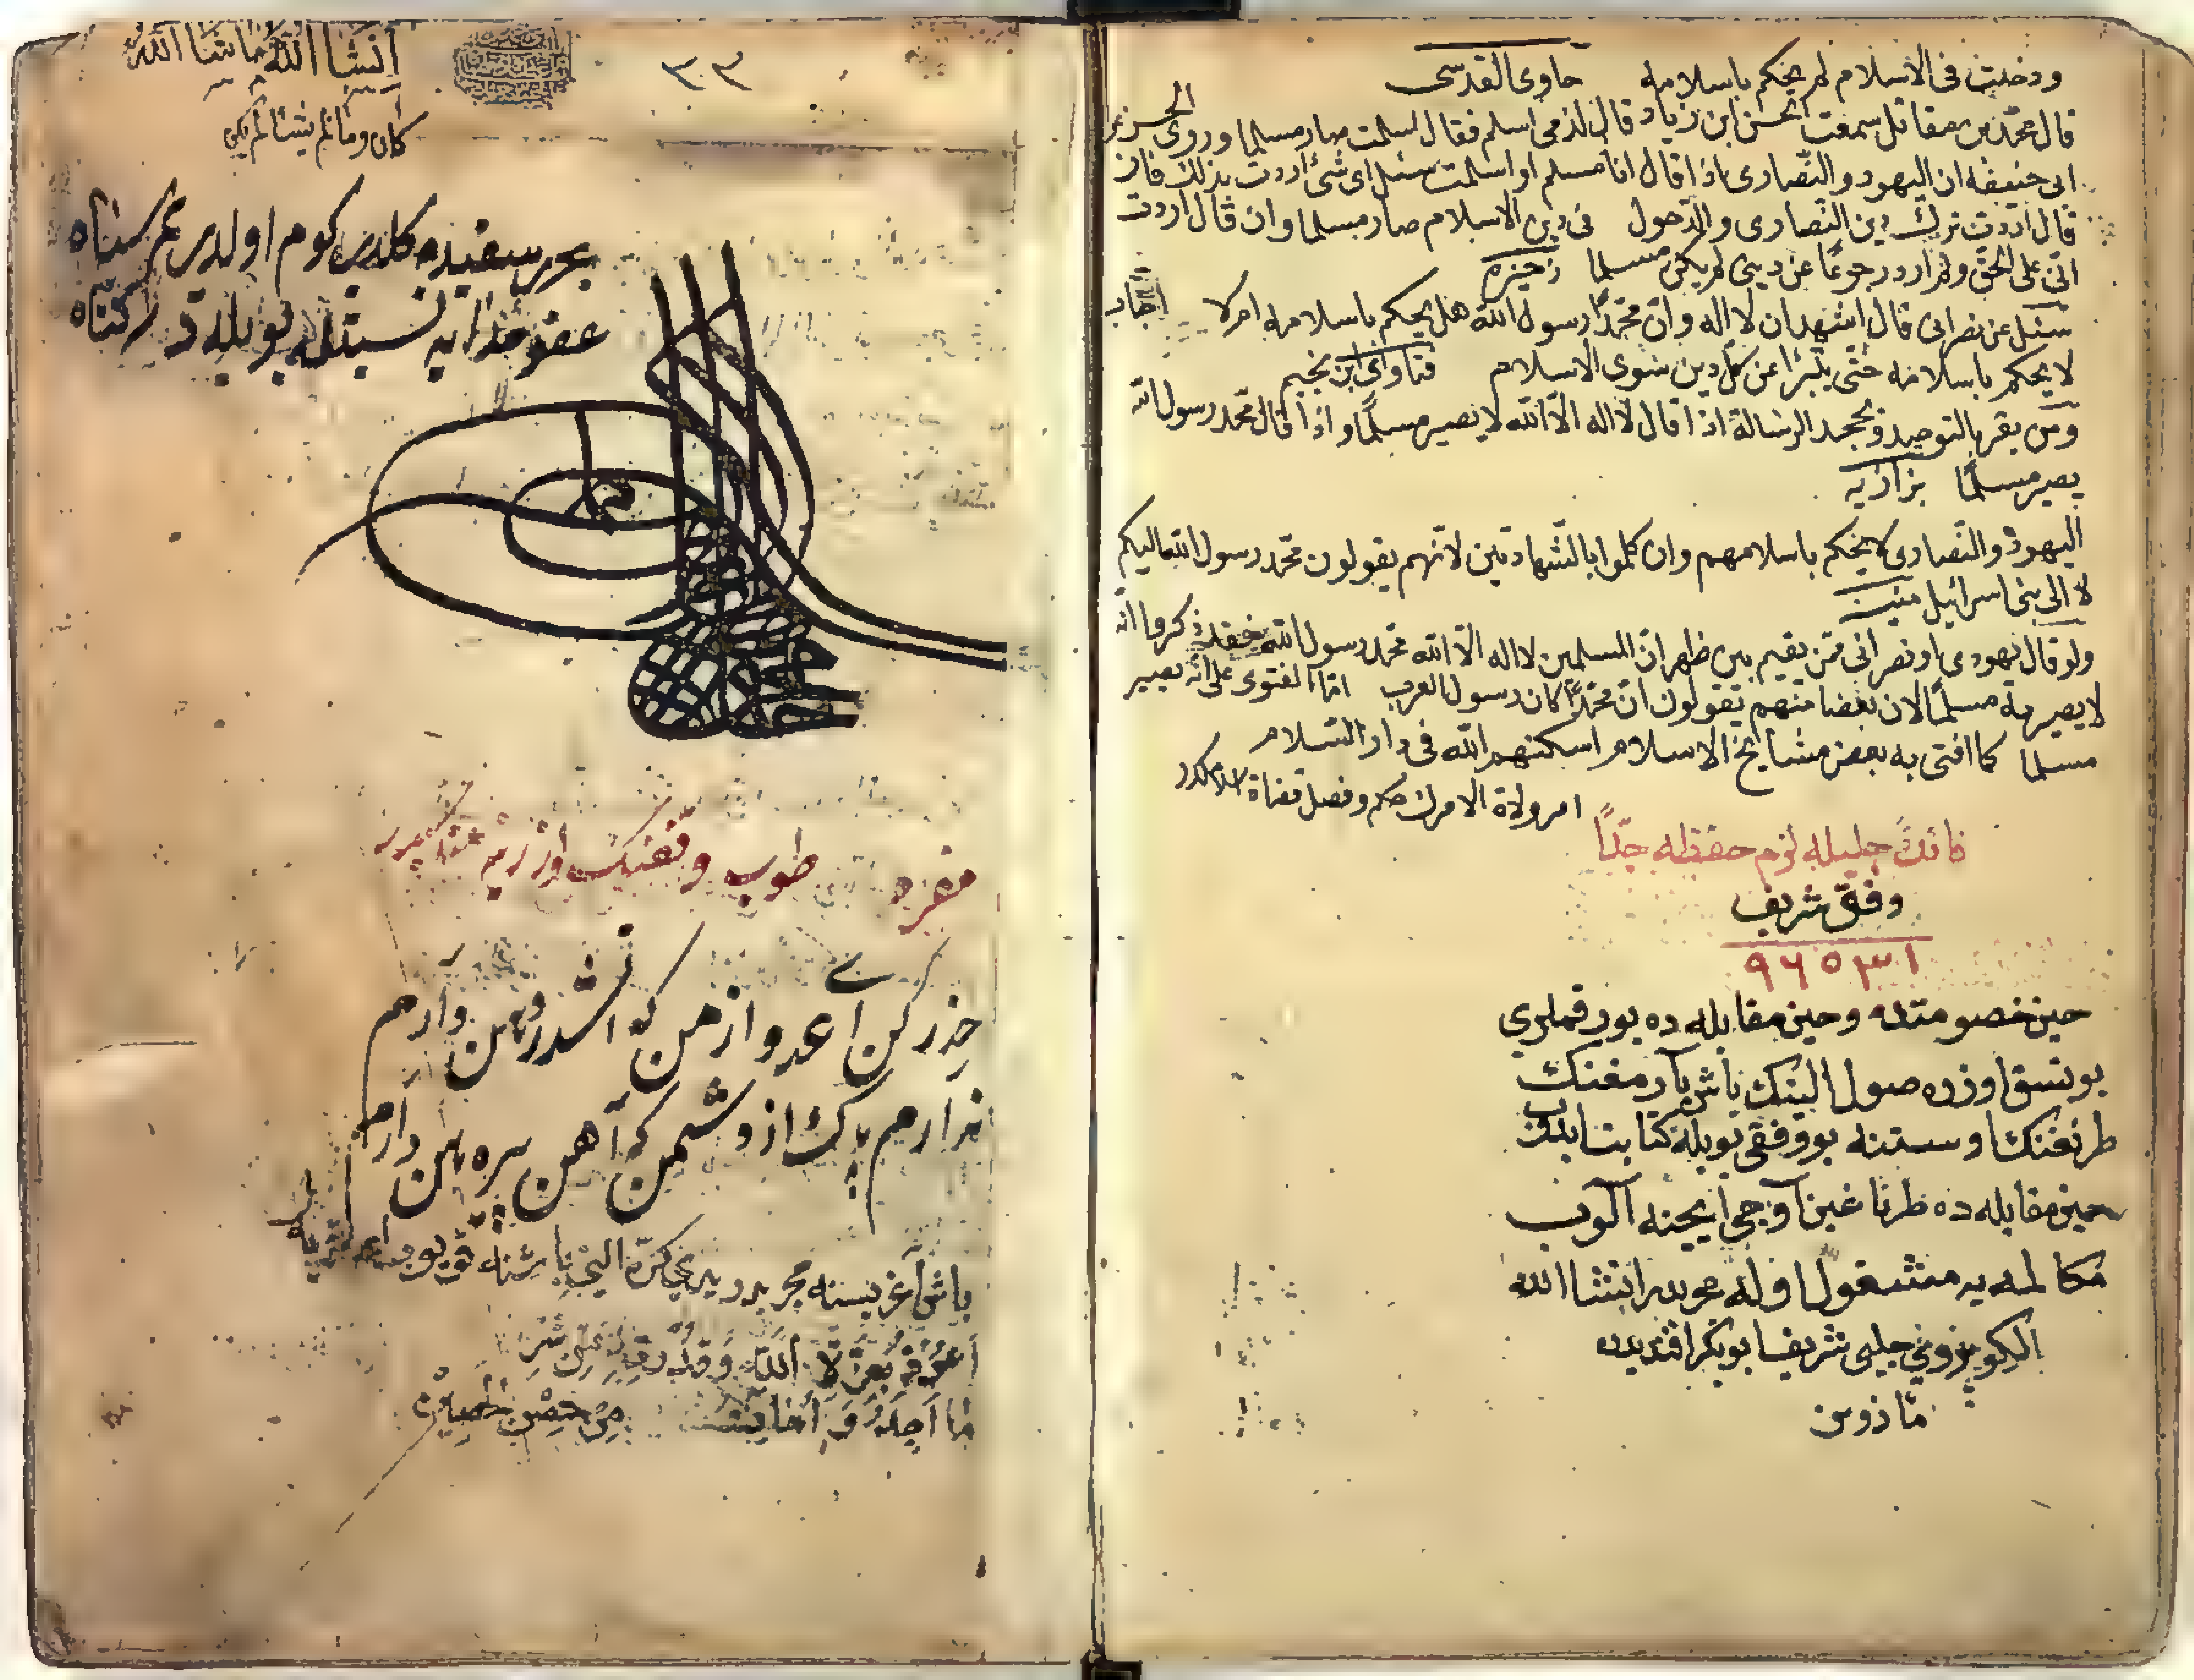 ودخلت فى الاسلام لم يحكم باسلامه حاوى القدسى
قال محمد بن مقاتل سمعت الحسن ابن زياد قال لذمى اسلم فقال اسلمت صار مسلما وروى الحسن عن
ابى حنيفه ان اليهود والنصارى اذا قال انا مسلم او اسلمت سئل اى شئ اردت بذلك فان
قال اردت ترك دين النصارى والدخول فى دين الاسلام صار مسلما وان قال اردت
انى على الحق ولم ارد رجوعا عن دينى لم يكن مسلما ذخيره
سئل عن نصرانى قال اشهد ان لا اله وان محمدا رسول الله هل يحكم باسلامه ام لا اجاب
لا يحكم باسلامه حتى يتبرا عن كل دين سوى الاسلام فتاوى ابن نجيم
ومن يقر بالتوحيد ويجحد الرسالة اذا قال لا اله الا الله لا يصير مسلما واذا قال محمد رسول الله
يصير مسلما بزازيه
اليهود والنصارى لا يحكم باسلامهم وان كلموا بالشهادتين لانهم يقولون محمد رسول الله اليكم
لا الى بنى اسرائيل
ولو قال يهودى او نصرانى ممن يقيم بين ظهران المسلمين لا اله الا الله محمد رسول الله فقد ذكروا انه
لا يصير به مسلما لان بعضا منهم يقولون ان محمدا كان رسول العرب اما الفتوى على انه يصير
مسلما كما افتى به بعض مشايخ الاسلام اسكنهم الله فى دار السلام
امر ولاة الامرك حكم وفصل قضاة
فائدة جليله لزم حفظه جدا
وفق شريف
٩٦٥١٣١
حين خصومتده وحين مقابله ده بو رقملرى
بو نسق اوزره صول الينك باش پارمغنك
طرنغنك اوستنه بو وفقى بويله كتابت ايلك
حين مقابله ده طرناغين آوجى ايچنه آلوب
مكالمه يه مشغول اوله مجربدر انشا الله
الكوبروينى چلبى شريف ابوبكر افنديدن
مأذون
انشا الله ما شا الله
كان وما لم يشا لم يكن
٣٠٣
كلدى كوم اولدى غم سناه
عفو خدايه نسبتله بويله در كناه
مفرد طوب وتفنك اوزرينه
حذر كن اى عدو از من كه اشدر من وارهم
ندارم باك از دشمن كه آهن من دارم
باش آغريسنه مجربدر
اعوذ بعزة الله وقدرته من شر
ما اجد و احاذر